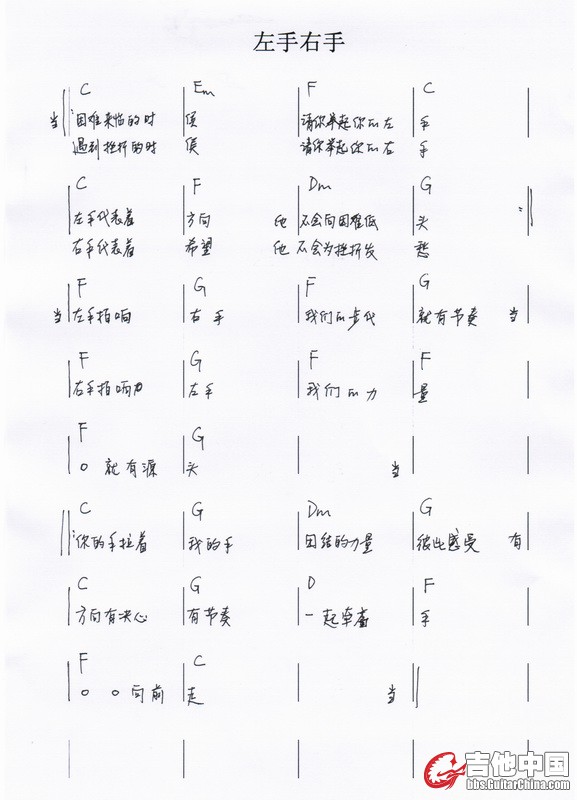 左手右手
C Em F C
当 困难来临的时 候 请你举起你的左 手
遇到挫折的时 候 请你举起你的右 手
C F Dm G
左手代表着 方向 他 不会向困难低 头
右手代表着 希望 他 不会为挫折发 愁
F G F G
当 左手拍响 右手 我们的步伐 就有节奏 当
F G F F
右手拍响 左手 我们的力 量
F G
就有源 头 当
C G Dm G
你的手拉着 我的手 团结的力量 彼此感受 有
C G D F
方向有决心 有节奏 一起牵 手
F C
向前 走 当
吉他中国
bbs.GuitarChina.com